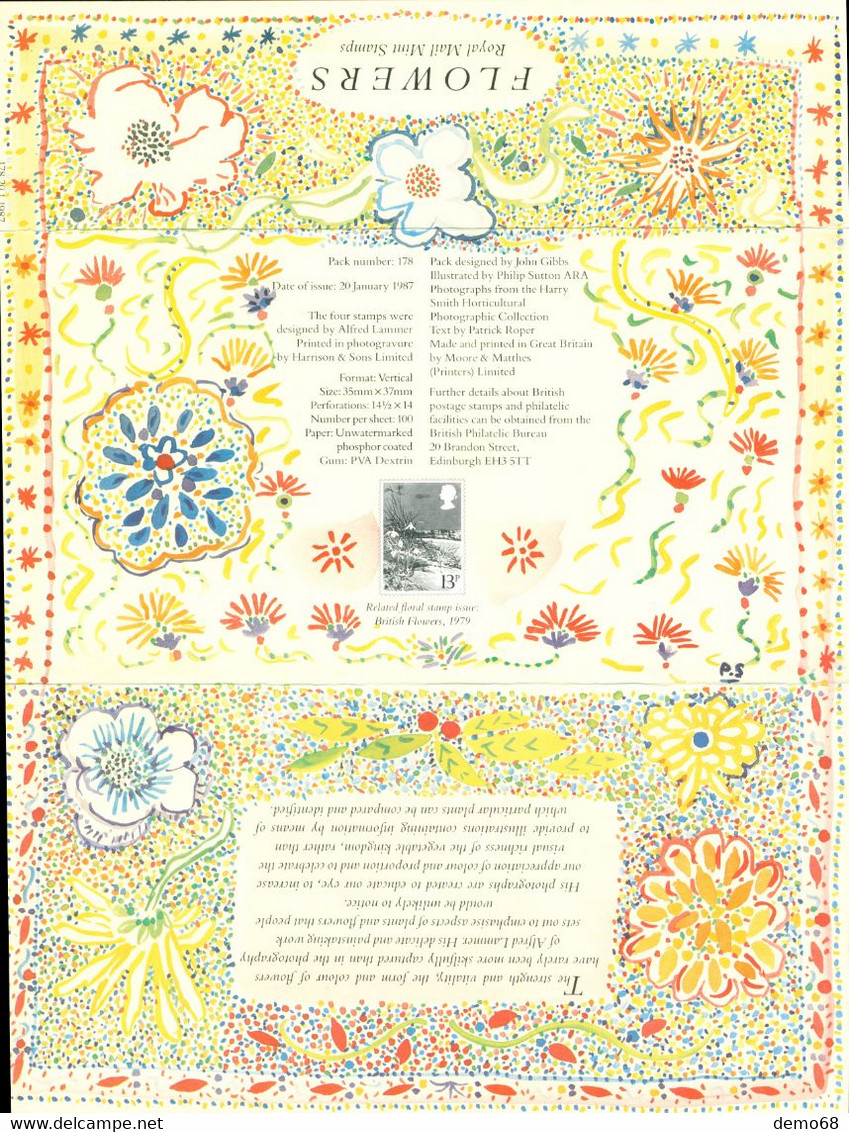 FLOWERS
Royal Mail Mint Stamps
Pack number: 178
Date of issue: 20 January 1987
The four stamps were
designed by Alfred Lammer
Printed in photogravure
by Harrison & Sons Limited
Format: Vertical
Size: 35mm × 37mm
Perforations: 14½ × 14
Number per sheet: 100
Paper: Unwatermarked
phosphor coated
Gum: PVA Dextrin
Pack designed by John Gibbs
Illustrated by Philip Sutton ARA
Photographs from the Harry
Smith Horticultural
Photographic Collection
Text by Patrick Roper
Made and printed in Great Britain
by Moore & Matthes
(Printers) Limited
Further details about British
postage stamps and philatelic
facilities can be obtained from the
British Philatelic Bureau
20 Brandon Street,
Edinburgh EH3 5TT
13P
Related floral stamp issue:
British Flowers, 1979
P.S
The strength and vitality, the form and colour of flowers
have rarely been more skilfully captured than in the photography
of Alfred Lammer. His delicate and painstaking work
sets out to emphasise aspects of plants and flowers that people
would be unlikely to notice.
His photographs are created to educate our eye, to increase
our appreciation of colour and proportion and to celebrate the
visual richness of the vegetable kingdom, rather than
to provide illustrations containing information by means of
which particular plants can be compared and identified.
demo68